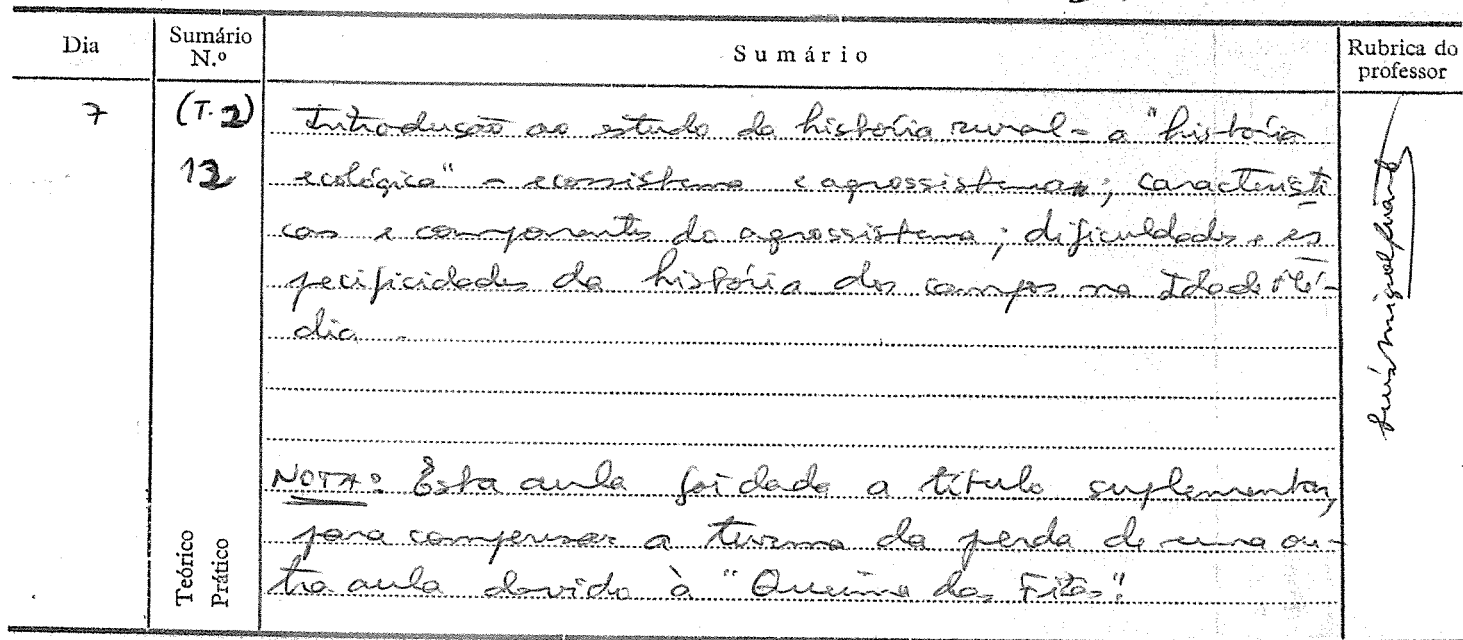 Dia
Sumário N.º
Sumário
Rubrica do professor
7
(T. 2)
12
Introdução ao estudo da história rural - a "história
ecológica" - ecossistema e agrossistema; característi
cas e componentes do agrossistema; dificuldades e es
pecificidades da história dos campos na Idade Mé-
dia.
NOTA: Esta aula foi dada a título suplementar,
para compensar a turma da perda de uma ou-
tra aula devido à "Queima das Fitas".
Teórico
Prático
Luís Miguel Duarte